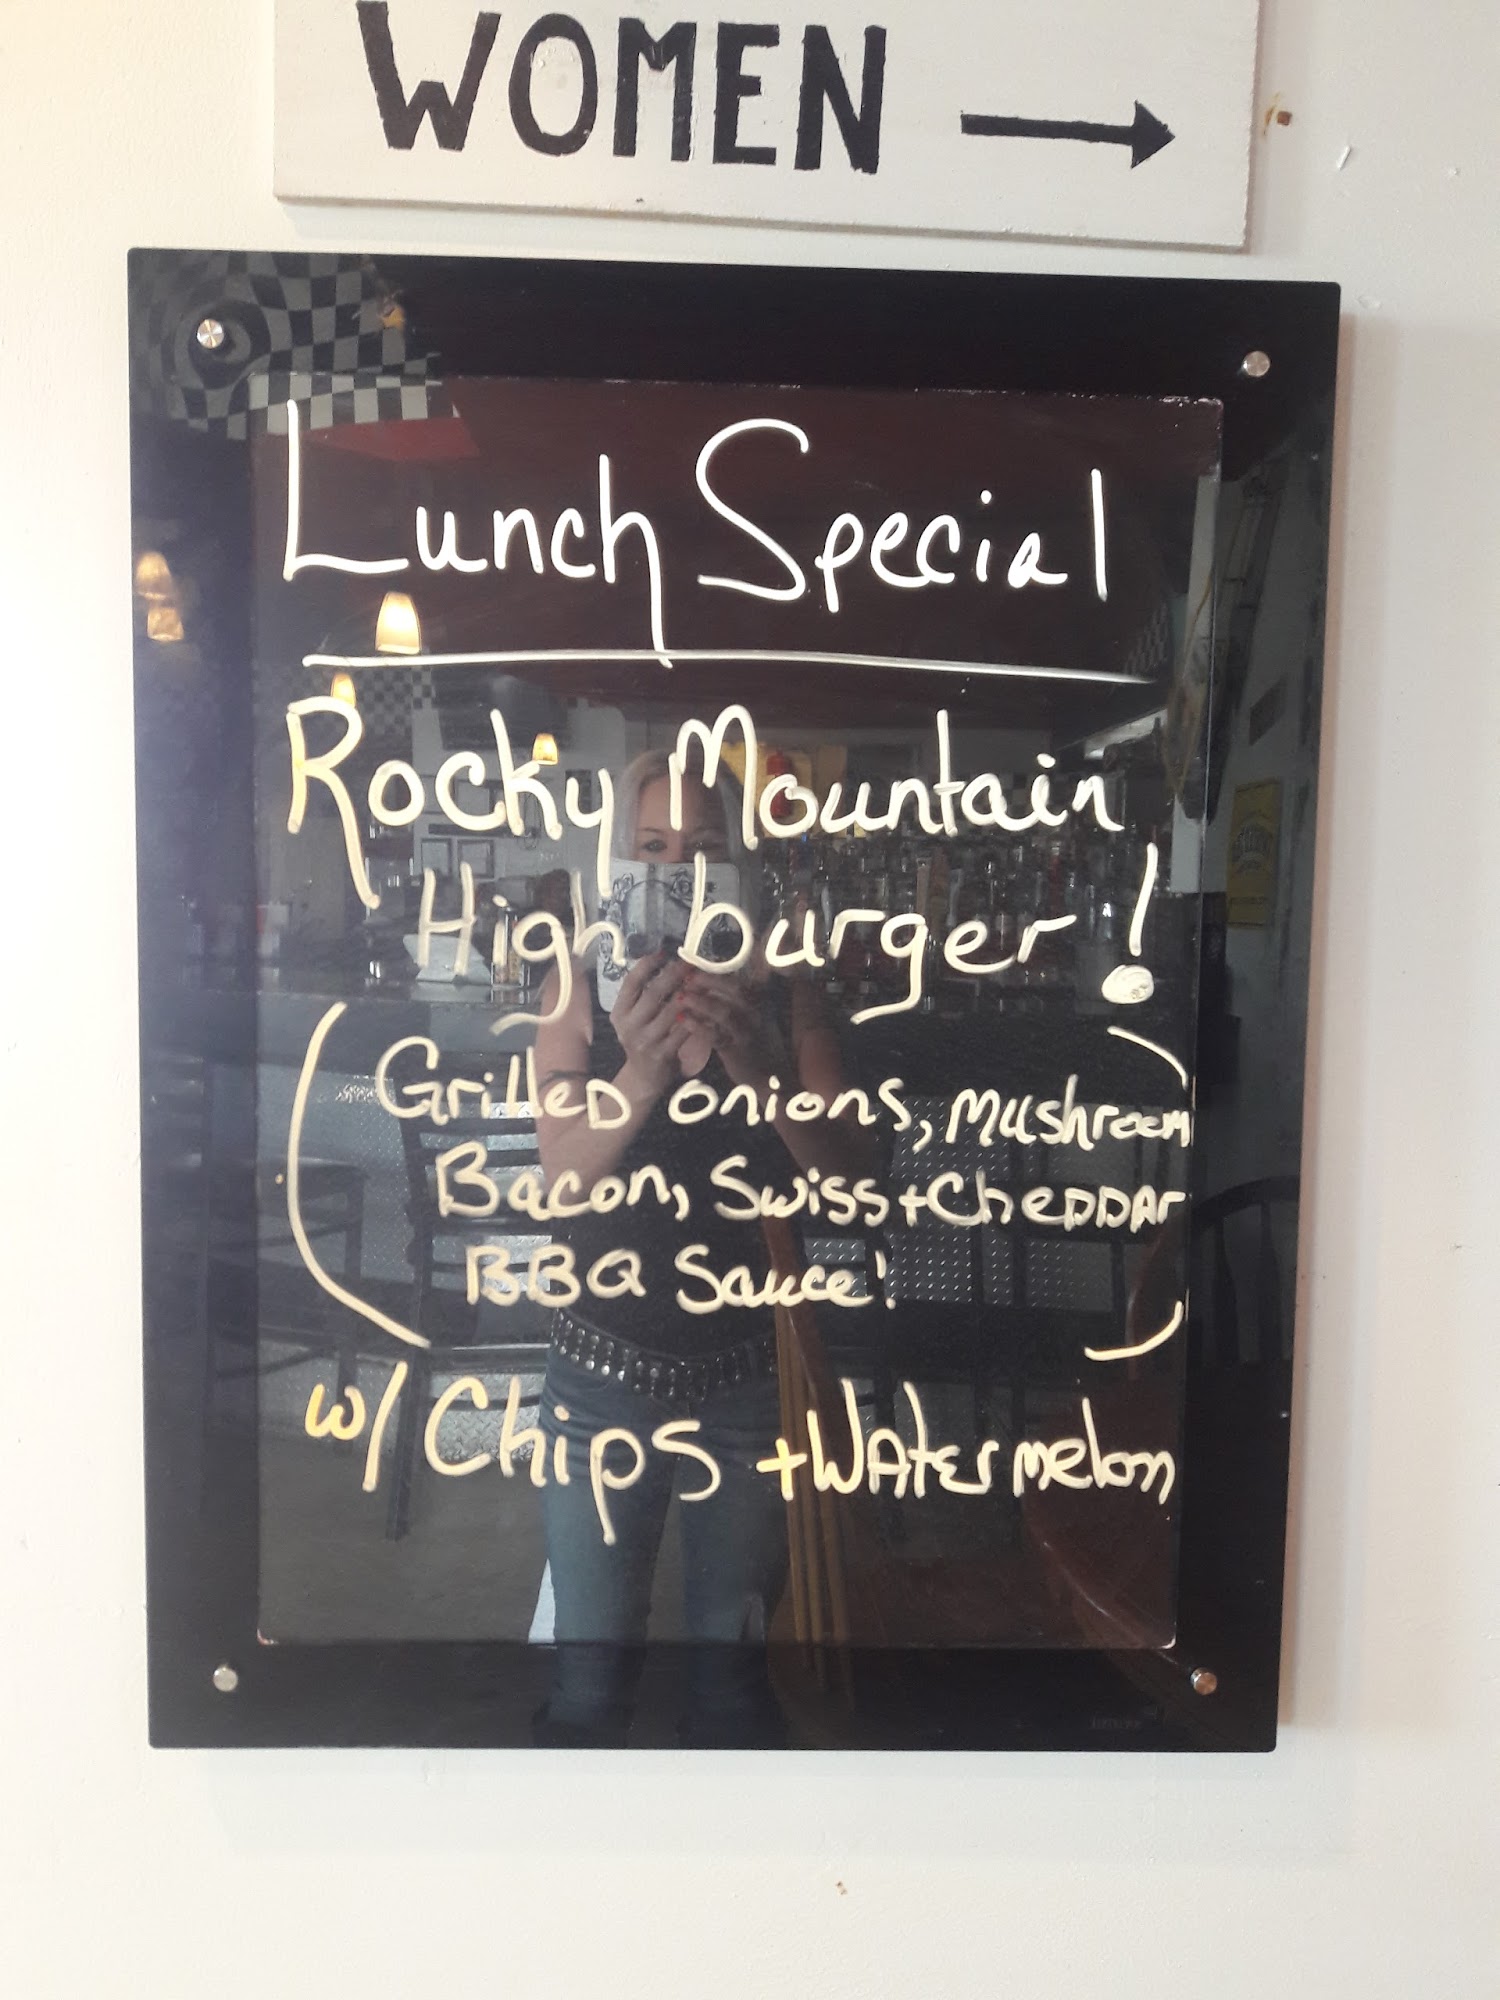 WOMEN
Lunch Special
Rocky Mountain
High burger!
(Grilled onions, Mushroom
Bacon, Swiss + Cheddar
BBQ Sauce!)
w/ Chips + Watermelon